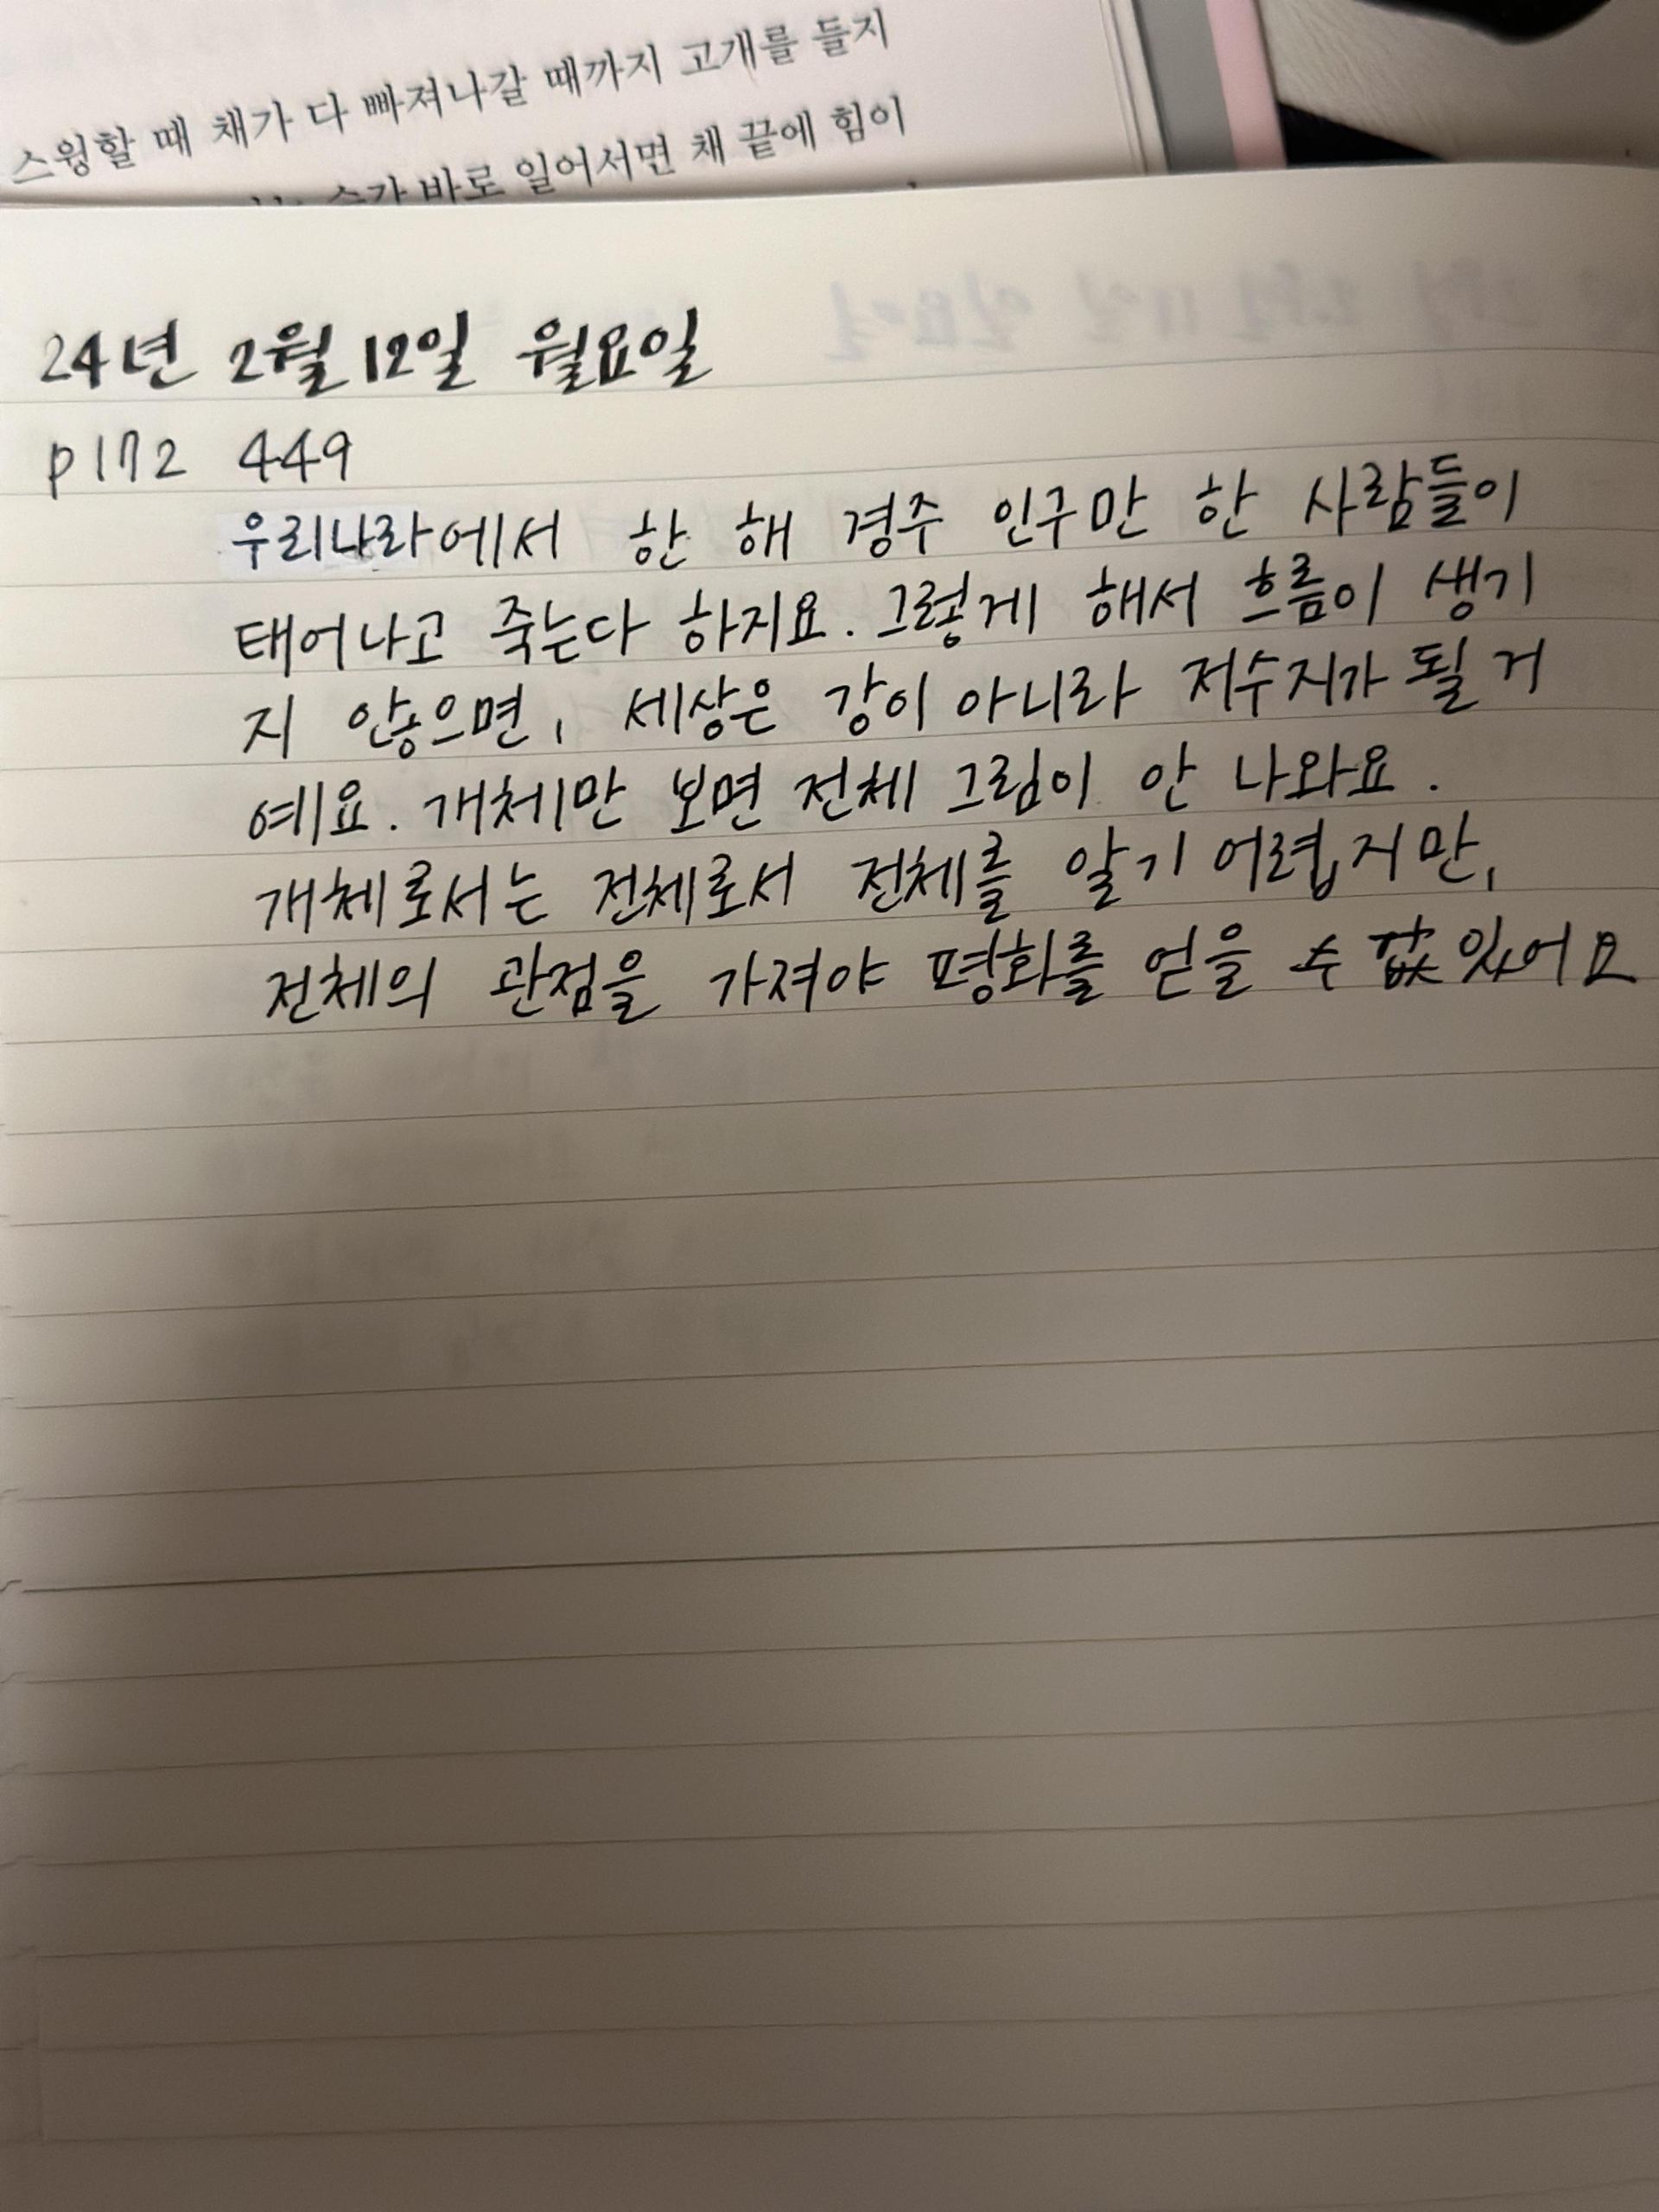 스윙할 때 채가 다 빠져나갈 때까지 고개를 들지
바로 일어서면 채 끝에 힘이
24년 2월 12일 월요일
p172 449
우리나라에서 한 해 경주 인구만 한 사람들이
태어나고 죽는다 하지요. 그렇게 해서 흐름이 생기
지 않으면, 세상은 강이 아니라 저수지가 될 거
예요. 개체만 보면 전체 그림이 안 나와요.
개체로서는 전체로서 전체를 알기 어렵지만,
전체의 관점을 가져야 평화를 얻을 수 있어요